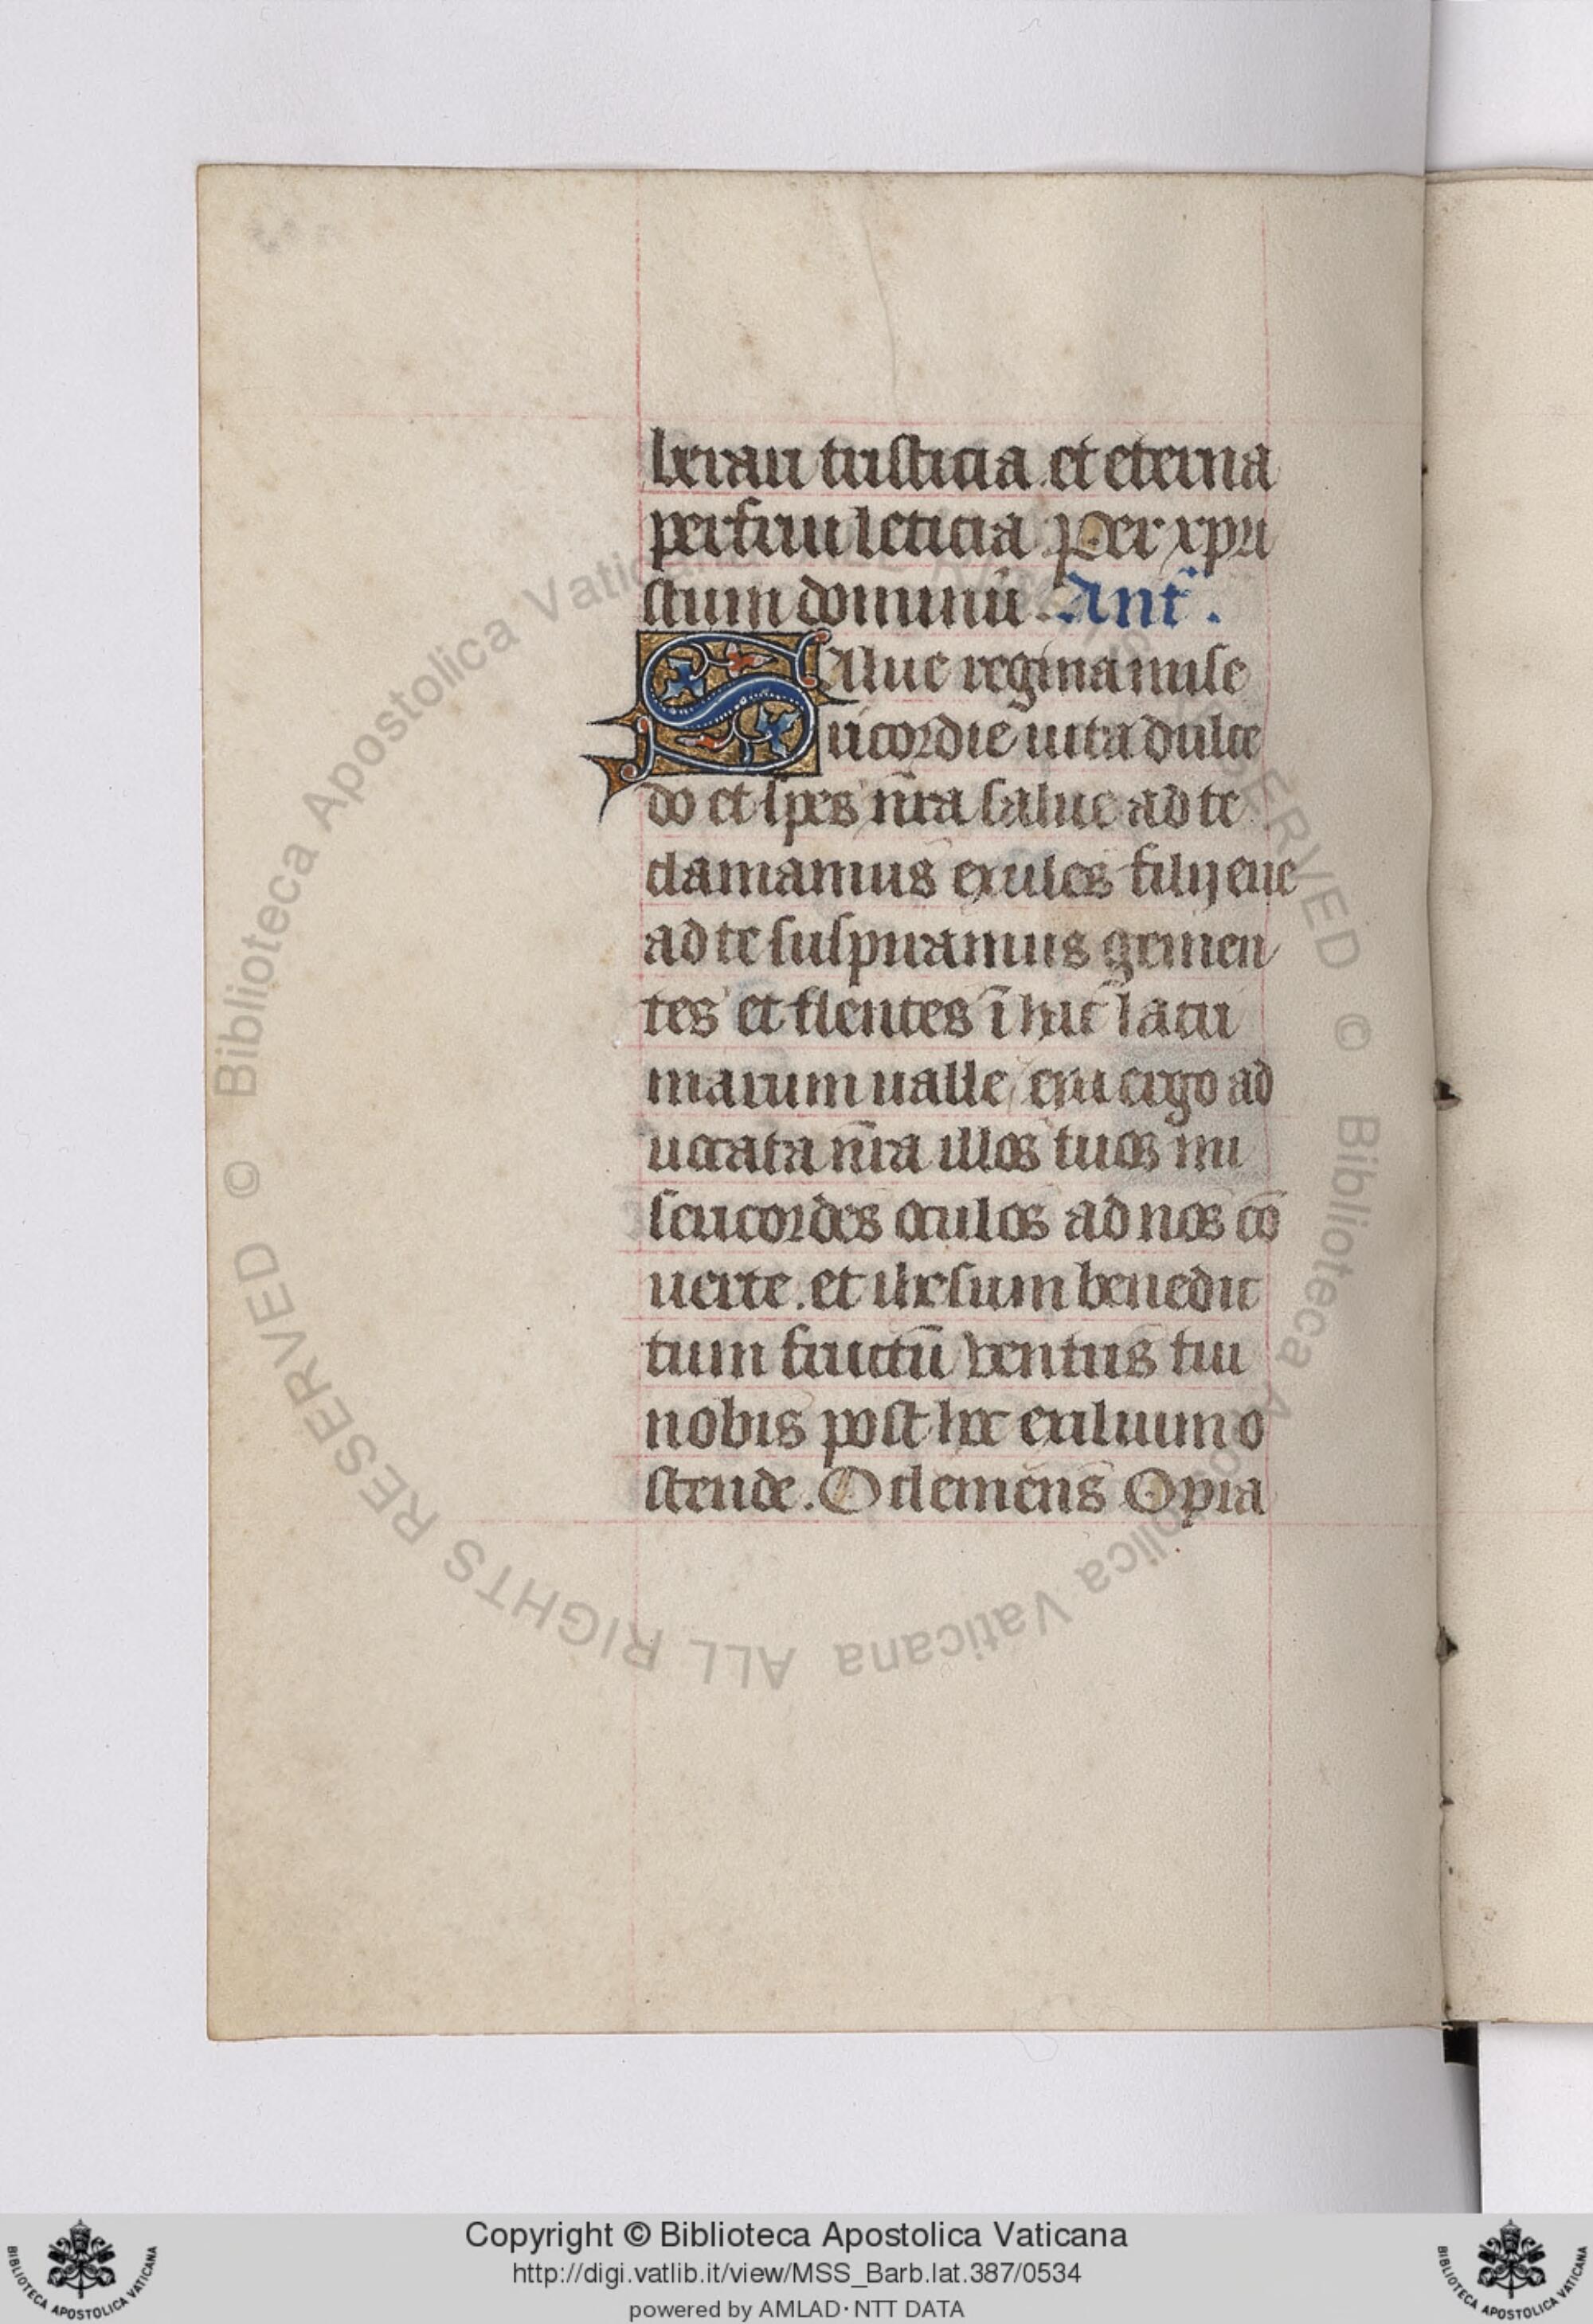 berari tristicia et eterna
perfrui leticia Per xpri
stum dominū. Ant̄.
Salue regina mise
ricordie uita dulce
do et spes nr̄a salue ad te
clamamus exules filij eue
ad te suspiramus gemen
tes et flentes ī hac lacri
marum ualle eya ergo ad
uocata nr̄a illos tuos mi
sericordes oculos ad nos cō
uerte. et ihesum benedic
tum fructū uentris tui
nobis post hoc exilium o
stende. O clemens O pia
© Biblioteca Apostolica Vaticana ALL RIGHTS RESERVED © Biblioteca Apostolica Vaticana ALL RIGHTS RESERVED
Copyright © Biblioteca Apostolica Vaticana
http://digi.vatlib.it/view/MSS_Barb.lat.387/0534
powered by AMLAD·NTT DATA
BIBLIOTECA APOSTOLICA VATICANA
BIBLIOTECA APOSTOLICA VATICANA